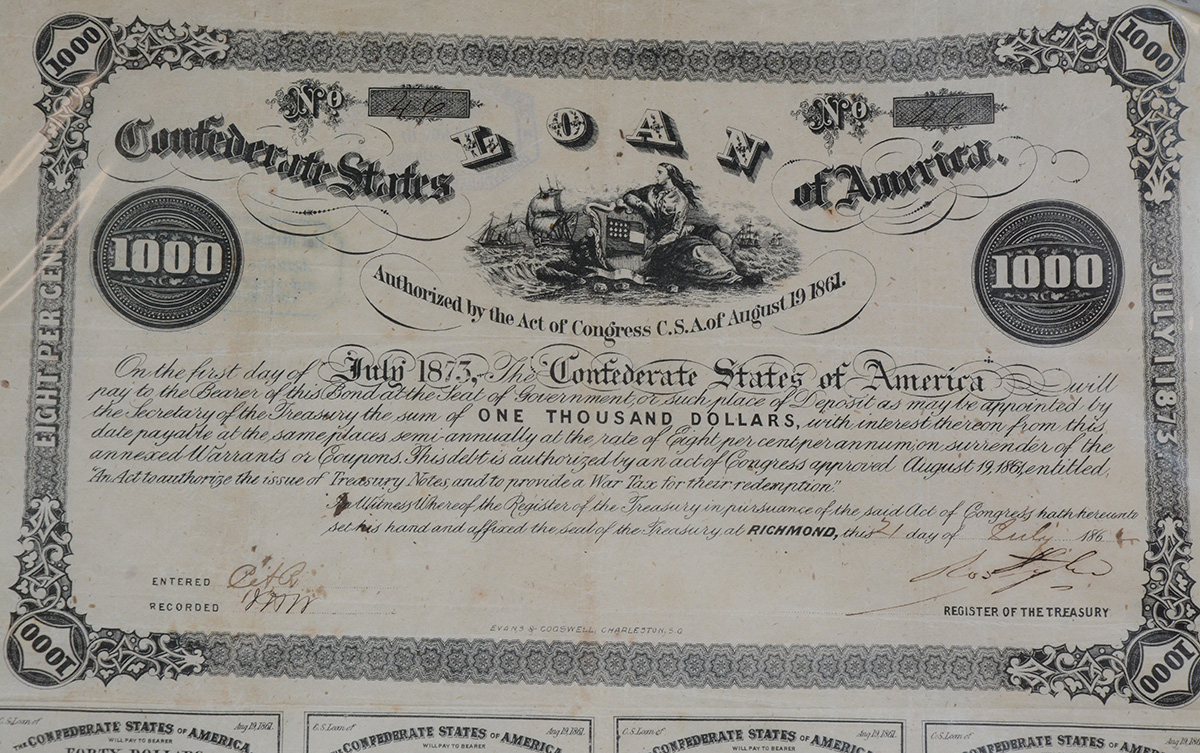 1000
1000
No 46 LOAN No
Confederate States of America.
1000
1000
Authorized by the Act of Congress C.S.A. of August 19 1861.
EIGHT PER CENT.
JULY 1 1873
On the first day of July 1873, The Confederate States of America will
pay to the Bearer of this Bond at the Seat of Government, or such place of Deposit as may be appointed by
the Secretary of the Treasury the sum of ONE THOUSAND DOLLARS, with interest thereon from this
date payable at the same places semi-annually at the rate of Eight per cent per annum, on surrender of the
annexed Warrants or Coupons. This debt is authorized by an act of Congress approved August 19, 1861, entitled,
"An Act to authorize the issue of Treasury Notes, and to provide a War Tax for their redemption."
In Witness Whereof the Register of the Treasury in pursuance of the said Act of Congress hath hereunto
set his hand and affixed the seal of the Treasury at RICHMOND, this 21 day of July 186
ENTERED
RECORDED
REGISTER OF THE TREASURY
EVANS & COGSWELL, CHARLESTON, S.C
1000
1000
C.S. Loan of Aug 19, 1861.
THE CONFEDERATE STATES OF AMERICA
WILL PAY TO BEARER
FORTY DOLLARS
C.S. Loan of Aug 19, 1861.
THE CONFEDERATE STATES OF AMERICA
WILL PAY TO BEARER
C.S. Loan of Aug 19, 1861.
THE CONFEDERATE STATES OF AMERICA
WILL PAY TO BEARER
C.S. Loan of
THE CONFEDERATE STATES OF AMERICA
WILL PAY TO BEARER